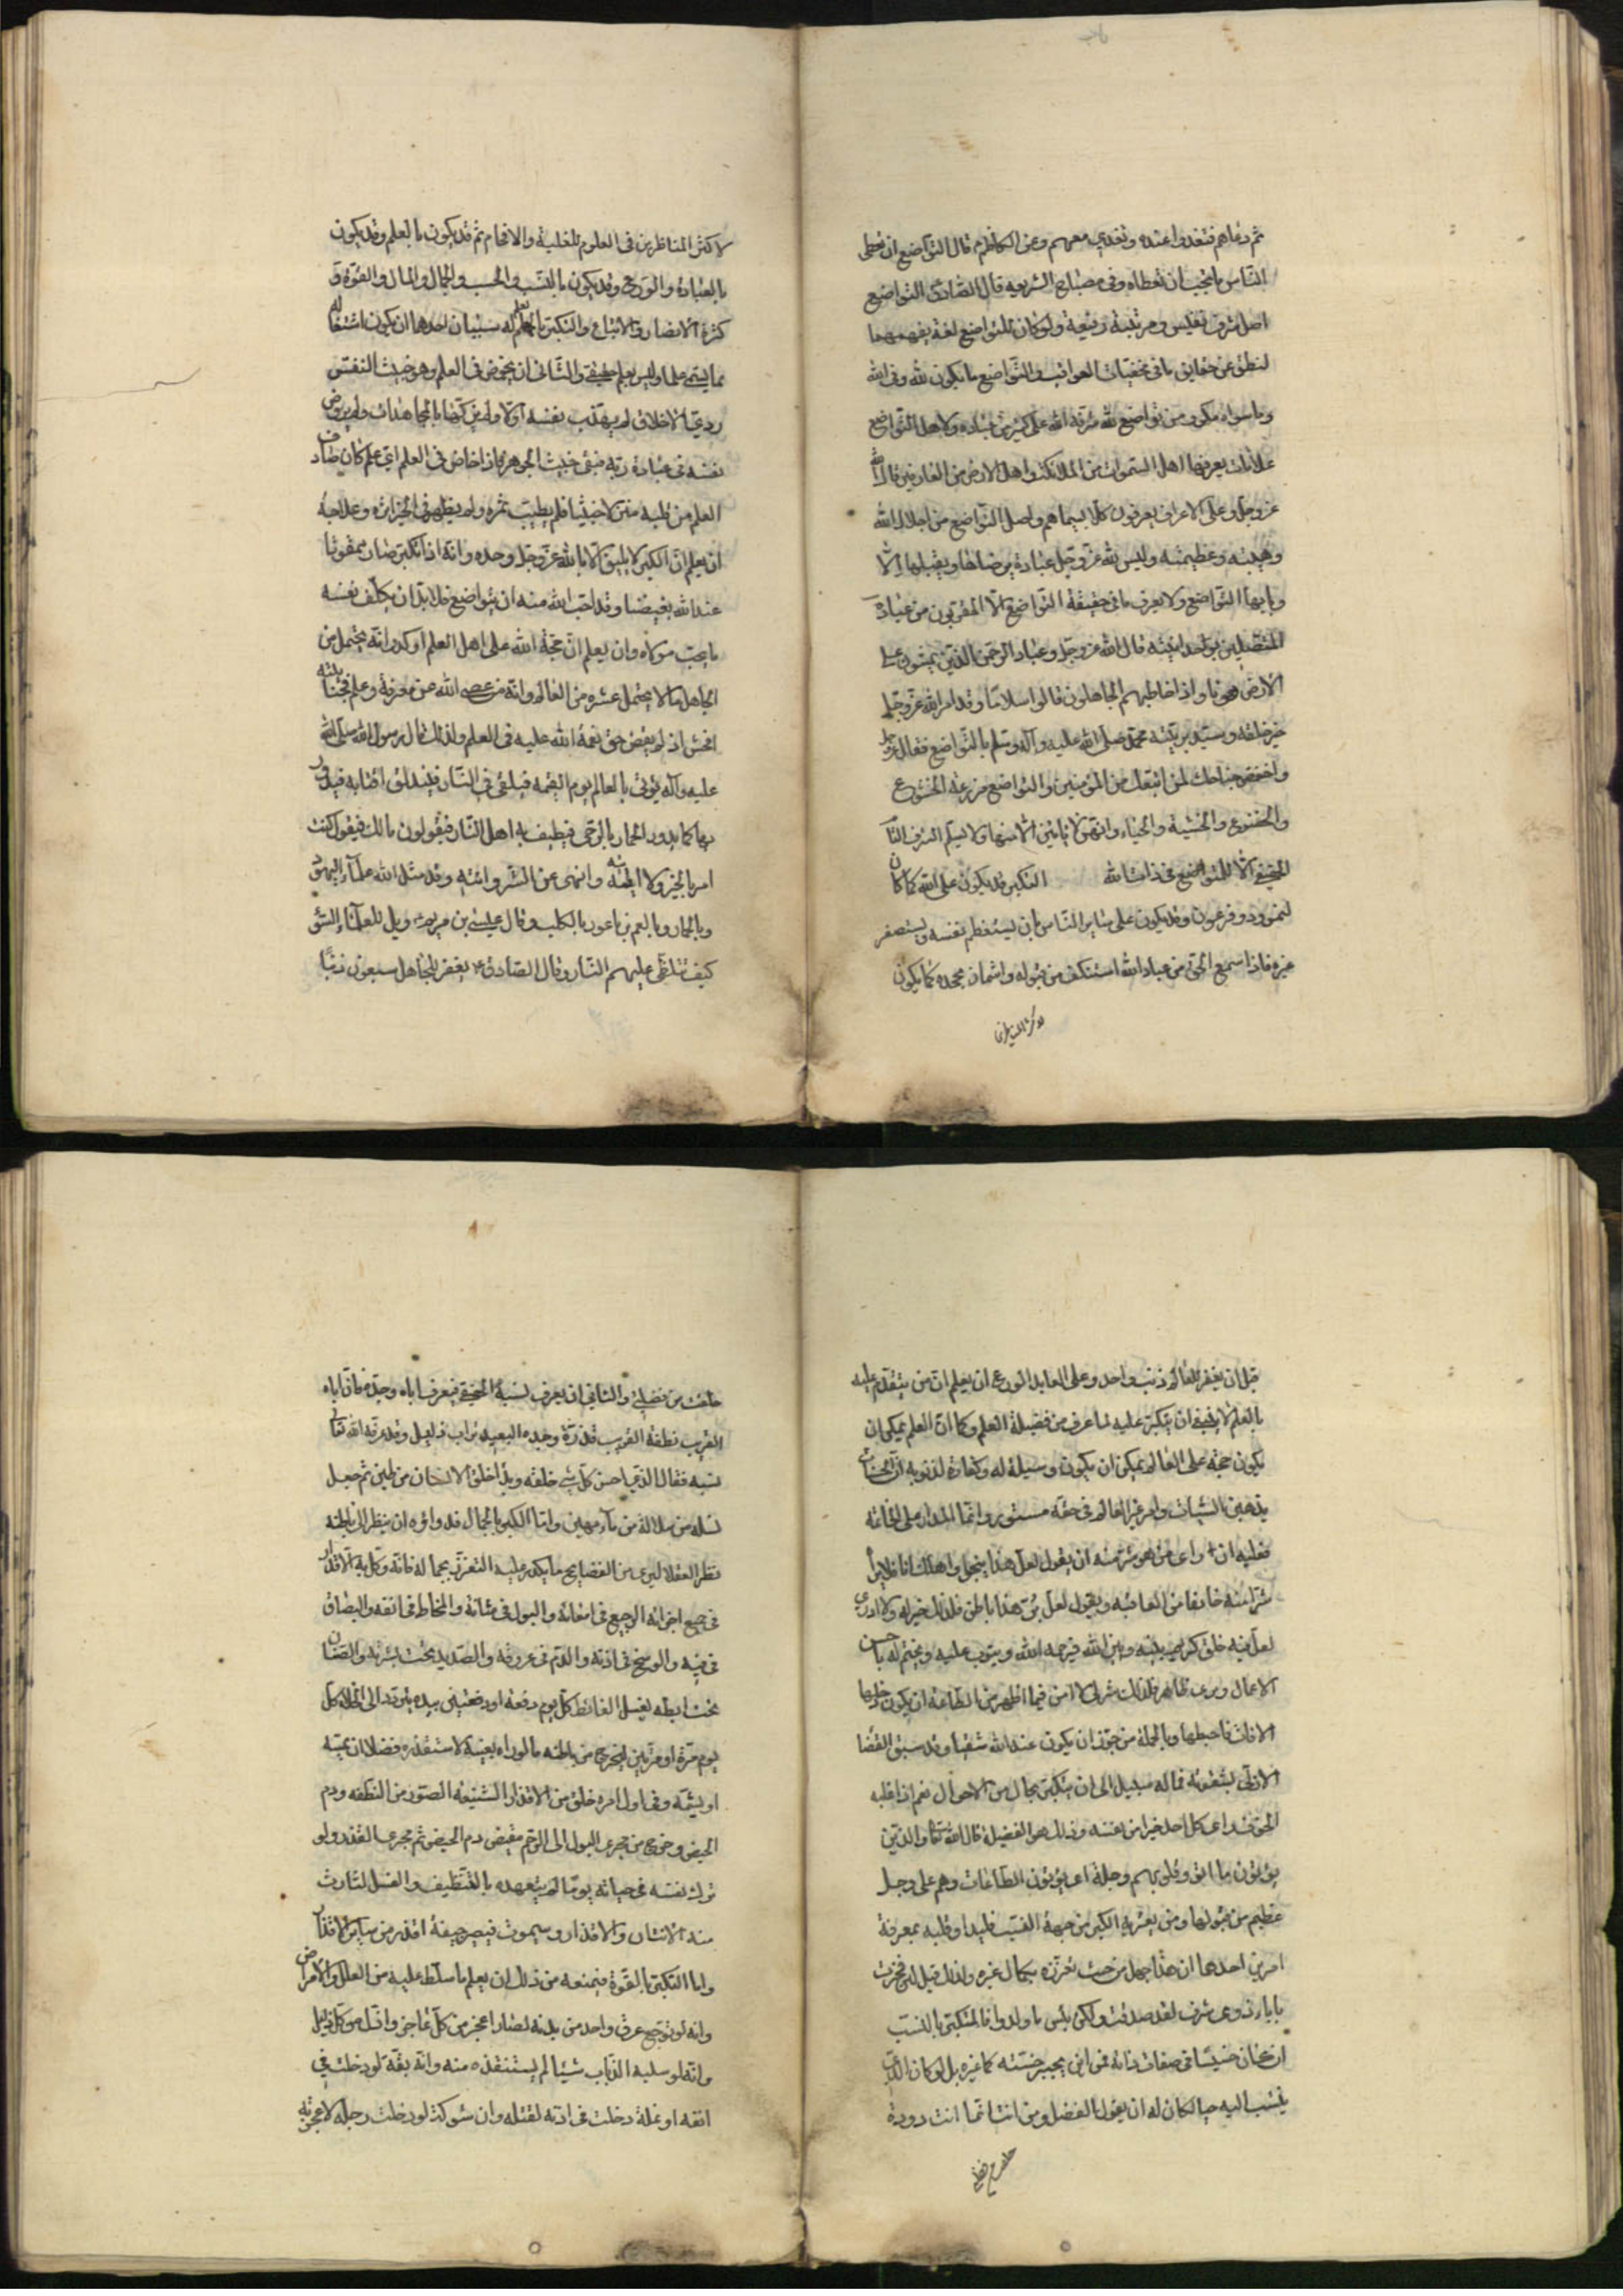 ثم دعاهم فتغدوا عنده وتغدى معهم وعن الكاظم قال التواضع ان تعطى
الناس ما تحب ان تعطاه وفى مصباح الشريعه قال الصادق التواضع
اصل شرف نفيس ومرتبة رفيعة ولو كان للتواضع لغة يفهمها
لنطق عن حقايق ما فى مخفيات العواقب والتواضع ما يكون لله وفى الله
وما سواه مكر ومن تواضع لله شرفه الله على كثير من عباده ولاهل التواضع
علامات يعرفها اهل السموات من الملائكة واهل الارض من العارفين قال الله
عز وجل وعلى الاعراف يعرفون كلا بسيماهم واصل التواضع من اجلال الله
وهيبته وعظيمته وليس لله عز وجل عبادة يرضاها ويقبلها الا
وبابها التواضع ولا يعرف ما فى حقيقة التواضع الا المقربون من عباده
المتصلين بوحدانيته قال الله عز وجل وعباد الرحمن الذين يمشون على
الارض هونا واذا خاطبهم الجاهلون قالوا سلاما وقد امر الله عز وجل
خير خلقه وسيد بريته محمد صلى الله عليه وآله وسلم بالتواضع فقال عز وجل
واخفض جناحك لمن اتبعك من المؤمنين والتواضع مزرعة الخشوع
والخضوع والخشية والحياء وانهن لا ياتين الا منها ولا يسلم الشرف التا
الحقيقى الا للمتواضع فى ذات الله التكبر قد يكون على الله كما كان
لنمرود وفرعون وقد يكون على ساير الناس بان يستعظم نفسه ويستصغر
غيره فاذا سمع الحق من عباد الله استنكف من قبوله واشماز بجحده كما يكون
لاكثر المناظرين
لاكثر المناظرين فى العلوم للغلبة والافحام ثم قد يكون بالعلم وقد يكون
بالعبادة والورع وقد يكون بالنسب والحسب والجمال والمال والقوة و
كثرة الانصار والاتباع والتكبر بالعلم له سببان احدهما ان يكون اشتغاله
بما يسمى علما وليس بعلم حقيقى والثانى ان يخوض فى العلم وهو خبيث النفس
ردى الاخلاق لم يهذب نفسه اولا ولم يزكها بالمجاهدات ولم يروض
نفسه فى عبادة ربه فبقى خبيث الجوهر فاذا خاض فى العلم اى علم كان صادف
العلم من قلبه منزلا خبيثا فلم يطيب ثمره ولم يظهر فى الخير اثره وعلاجه
ان يعلم ان الكبر لا يليق الا بالله عز وجل وحده وانه اذا تكبر صار ممقوتا
عند الله بغيضا وقد احب الله منه ان يتواضع فلا بد ان يكلف نفسه
ما يحب مولاه وان يعلم ان حجة الله على اهل العلم اوكد وانه يحتمل من
الجاهل ما لا يحتمل عشره من العالم وانه من عصى الله عن معرفة وعلم فجنايته
افحش اذ لم يقض حق نعمة الله عليه فى العلم ولذلك قال رسول الله صلى الله
عليه وآله يؤتى بالعالم يوم القيمه فيلقى فى النار فيندلق اقتابه فيدور
بها كما يدور الحمار بالرحى فيطيف به اهل النار فيقولون مالك فيقول كنت
امر بالخير ولا اتيه وانهى عن الشر وآتيه وقد مثل الله علماء اليهود
وبالحمار وبلعم بن باعور بالكلب وقال عيسى بن مريم ويل للعلماء السوء
كيف تتلظى عليهم النار وقال الصادق ع يغفر للجاهل سبعون ذنبا
قبل ان يغفر للعالم ذنب واحد وعلى العابد الورع ان يعلم ان من يتقدم عليه
بالعلم لا ينبغى ان يتكبر عليه لما عرف من فضيلة العلم وكما ان العلم يمكن ان
يكون حجة على العالم يمكن ان يكون وسيلة له وكفارة لذنوبه ان الحسنات
يذهبن السيئات وامر غير العالم فى حقه مستور وانما المدار على الخاتمه
فعليه ان راى من هو شر منه ان يقول لعل هذا ينجو واهلك انا فلا يرا
شرا منه خائفا من العاقبه ويقول لعل بر هذا باطن فذلك خير له ولا ادرى
لعل فيه خلق كريم بينه وبين الله فيرحمه الله ويتوب عليه ويختم له باحسن
الاعمال وبرى ظاهر فذلك شر لى لا امن فيما اظهر من الطاعة ان يكون دخلها
الافات فاحبطها وبالجملة من جوز ان يكون عند الله شقيا وقد سبق القضا
الازلى بشقوته فما له سبيل الى ان يتكبر بحال من الاحوال نعم اذا غلبه
الخوف راى كل احد خيرا من نفسه وذلك هو الفضيلة قال الله تعالى والذين
يؤتون ما اتوا وقلوبهم وجلة اى يؤتون الطاعات وهم على وجل
عظيم من قبولها ومن يعتريه الكبر من جهة النسب فليداو قلبه بمعرفة
امرين احدها ان هذا جهل من حيث تعززه بكمال غيره ولذلك قيل لئن فخرت
باباء ذوى شرف لقد صدقت ولكن بئس ما ولدوا فالمتكبر بالنسب
ان كان خسيسا فى صفات ذاته فمن اين يجبر خسته كما غيره بل لو كان الذى
ينسب اليه حيا لكان له ان يقول الفضل ومن انت انما انت دودة
خلقت من فضلى
خلقت من فضلى والثانى ان يعرف نسبه الحقيقى فيعرف اباه وجده فان اباه
القريب نطفة القريب قذرة وجده البعيد تراب ذليل وقد عرفه الله تعالى
نسبه فقال الذى احسن كل شى خلقه وبدا خلق الانسان من طين ثم جعل
نسله من سلالة من ماء مهين واما الكبر بالجمال فدواؤه ان ينظر الى باطنه
نظر العقلا ليرى من الفضايح ما يكدر عليه التعزز بجماله فانه وكل به الاقذار
فى جميع اجزائه الرجيع فى امعائه والبول فى مثانته والمخاط فى انفه والبصاق
فى فيه والوسخ فى اذنه والدم فى عروقه والصديد تحت بشرته والصنان
تحت ابطه يغسل الغائط كل يوم دفعة او دفعتين بيده يتردد الى الخلاء كل
يوم مرة او مرتين ليخرج من باطنه ما لو راه بعينه لاستقذره فضلا ان يمسه
او يشمه وفى اول امره خلق من الاقذار الشنيعه الصور من النطفه ودم
الحيض وخرج من مجرى البول الى الرحم مفيض دم الحيض ثم مجرى القذر ولو
ترك نفسه فى حياته يوما لم يتعهده بالتنظيف والغسل لثارت
منه الانتان والاقذار وسيموت فيصير جيفة اقذر من ساير الاقذار
واما التكبر بالقوة فيمنعه من ذلك ان يعلم ما سلط عليه من العلل والامراض
وانه لو توجع عرق واحد من بدنه لصار اعجز من كل عاجز واذل من كل ذليل
وانه لو سلبه الذباب شيئا لم يستنقذه منه وانه بقة لو دخلت فى
انفه او نملة دخلت فى اذنه لقتلته وان شوكة لو دخلت رجله لاعجزته